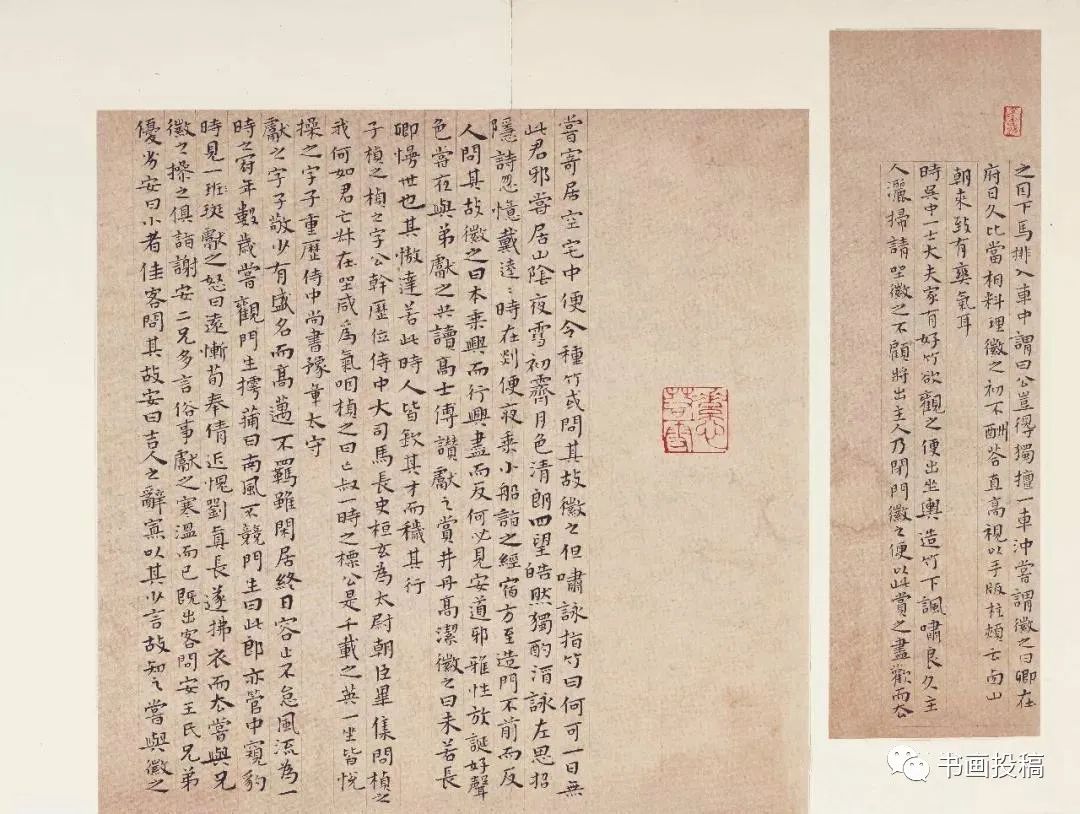 之因下馬排入車中謂曰公豈得獨擅一車沖嘗謂徽之曰卿在
府日久比當相料理徽之初不酬荅直高視以手版柱頰云西山
朝來致有爽氣耳
時吳中一士大夫家有好竹欲觀之便出坐輿造竹下諷嘯良久主
人灑掃請坐徽之不顧將出主人乃閉門徽之便以此賞之盡歡而去
嘗寄居空宅中便令種竹或問其故徽之但嘯詠指竹曰何可一日無
此君邪嘗居山陰夜雪初霽月色清朗四望皓然獨酌酒詠左思招
隱詩忽憶戴逵〻時在剡便夜乘小船詣之經宿方至造門不前而反
人問其故徽之曰本乘興而行興盡而反何必見安道邪雅性放誕好聲
色嘗夜與弟獻之共讀高士傳讚獻之賞井丹高潔徽之曰未若長
卿慢世也其慠達若此時人皆欽其才而穢其行
子楨之楨之字公幹歷位侍中大司馬長史桓玄為太尉朝臣畢集問楨之
我何如君亡叔在坐咸為氣咽楨之曰亡叔一時之標公是千載之英一坐皆悅
操之字子重歷侍中尚書豫章太守
獻之字子敬少有盛名而高邁不羈雖閑居終日容止不怠風流為一
時之冠年數歲嘗觀門生摴蒱曰南風不競門生曰此郎亦管中窺豹
時見一班斑獻之怒曰遠慚荀奉倩近愧劉真長遂拂衣而去嘗與兄
徽之操之俱詣謝安二兄多言俗事獻之寒溫而已既出客問安王氏兄弟
優劣安曰小者佳客問其故安曰吉人之辭寡以其少言故知之嘗與徽之
书画投稿